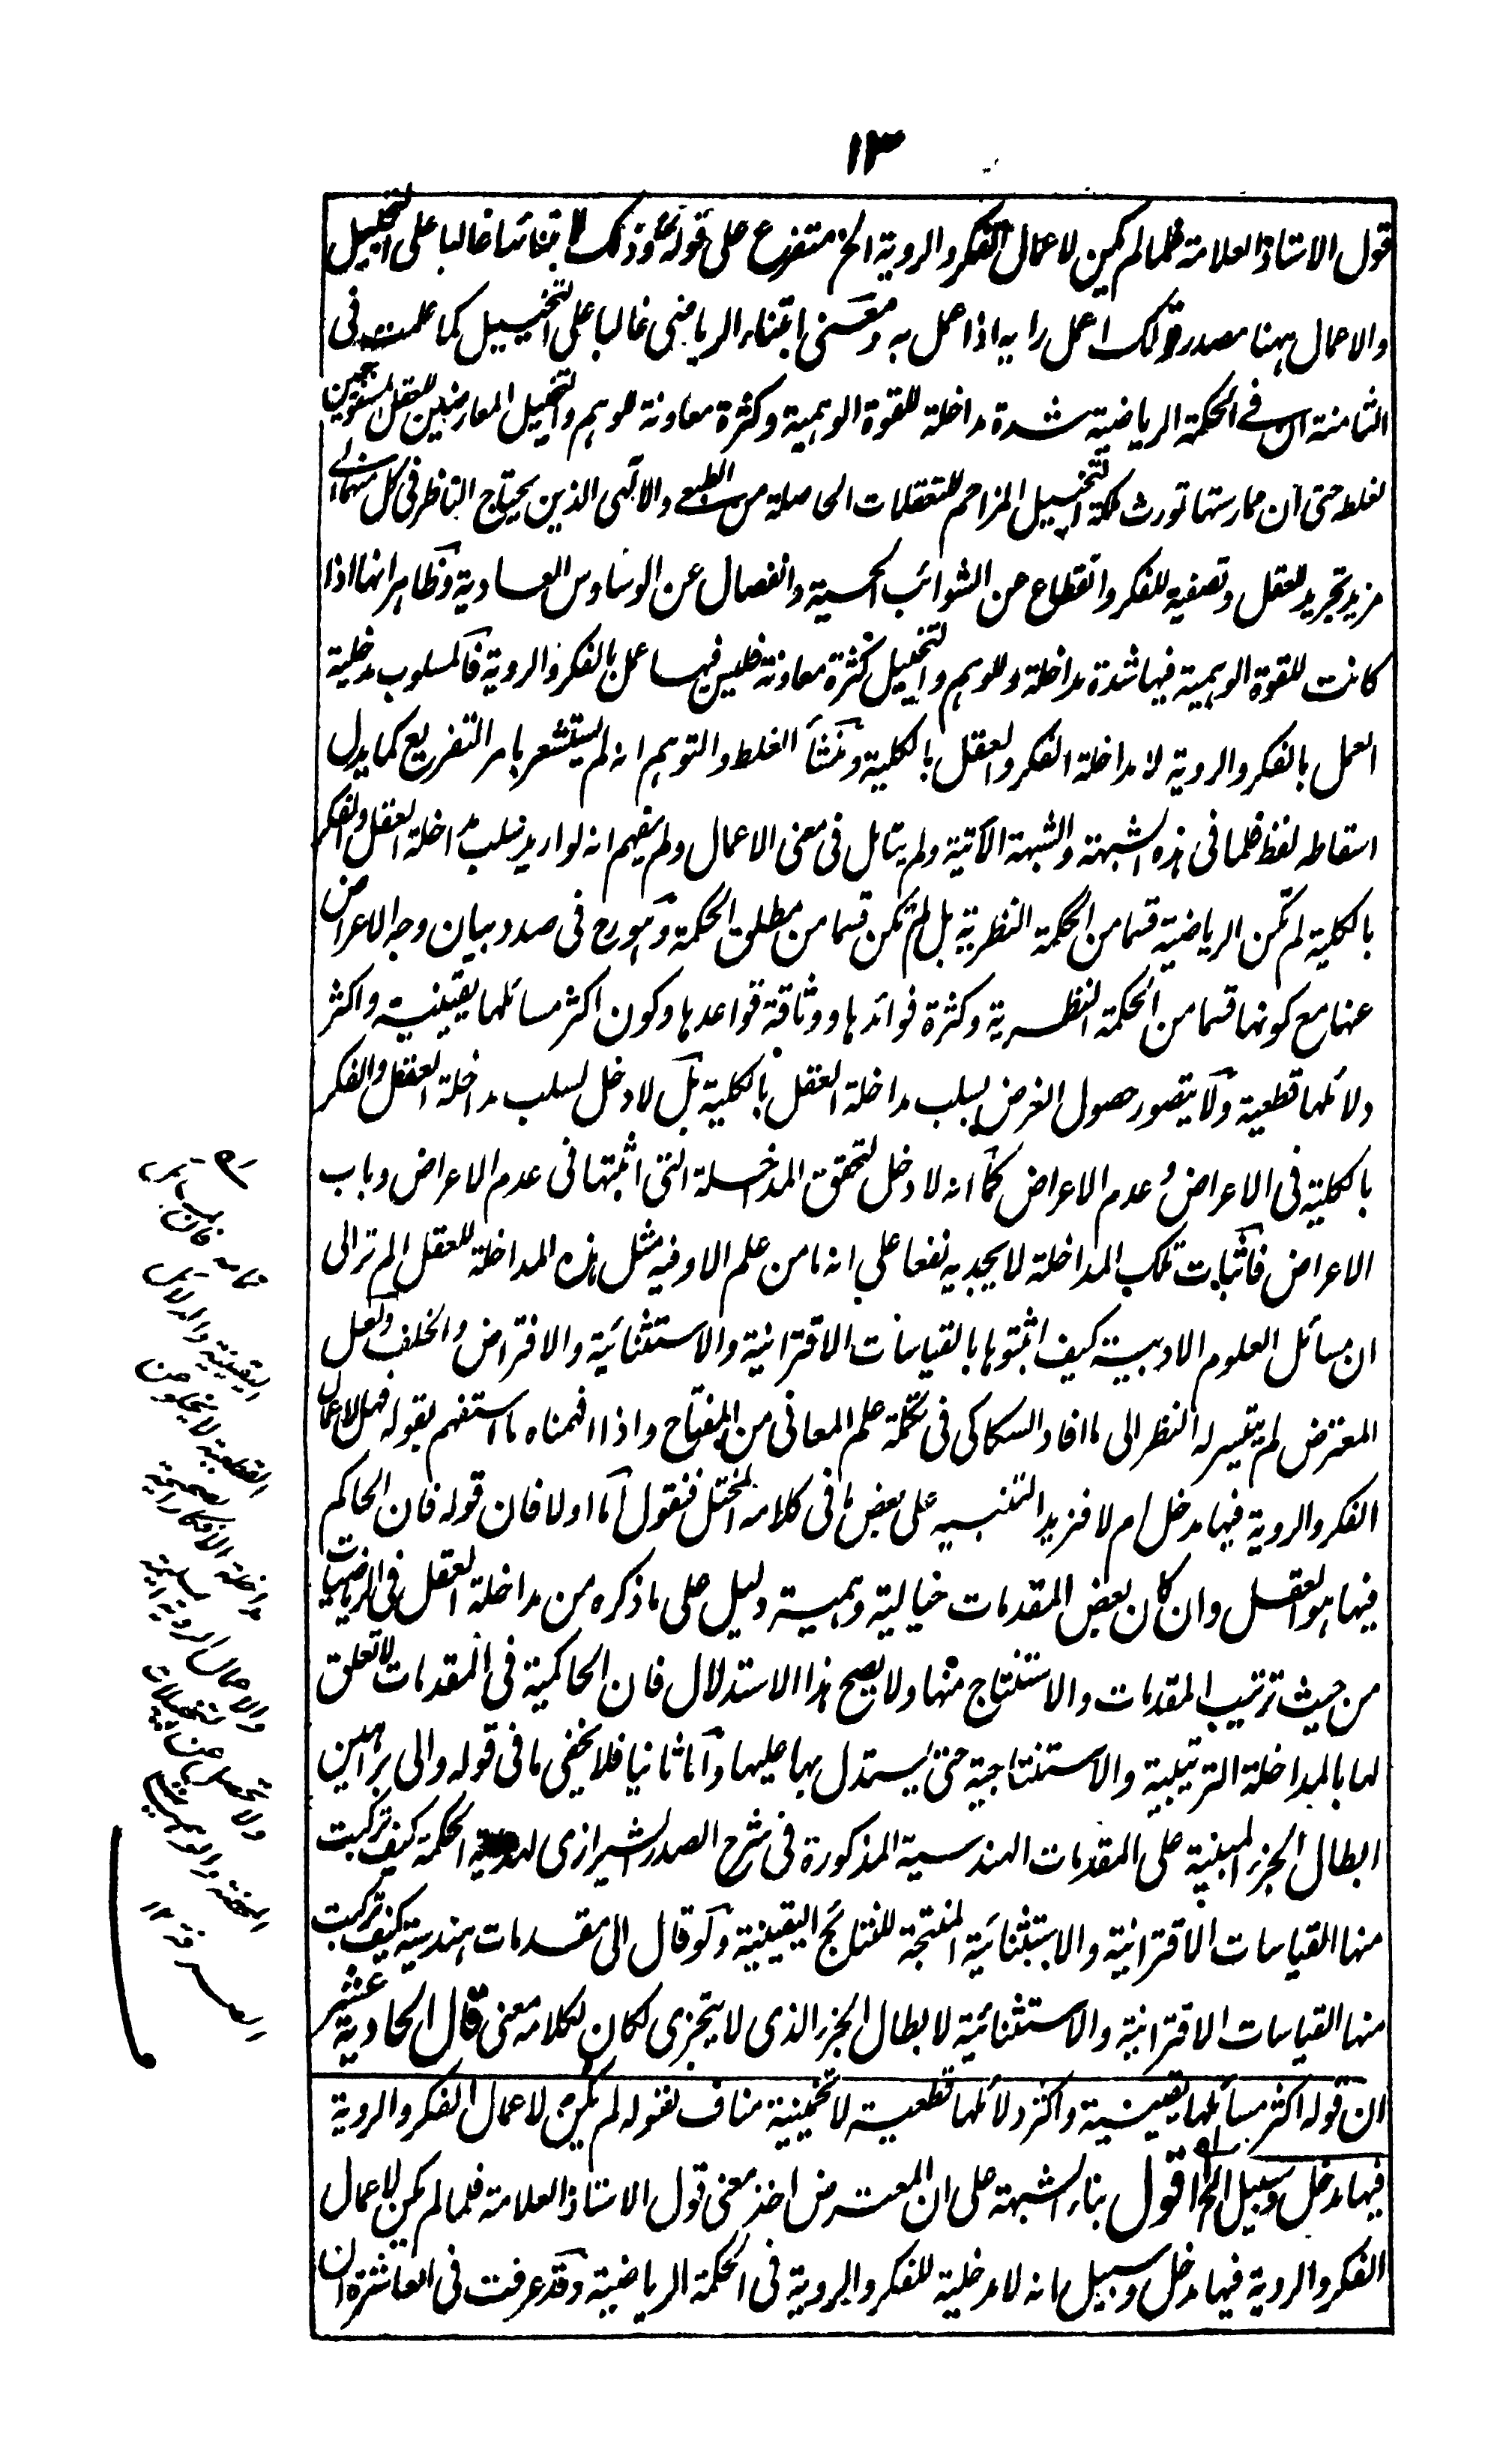 ١٣
قول الاستاذ العلامة فلما لم يكن لاعمال الفكر والروية الخ متفرع على قوله وذلك لابتنائها غالبا على التخييل
والاعمال ههنا مصدر قولك اعمل رايه اذا عمل به ومعنى ابتناء الرياضى غالبا على التخييل كما علمت فى
الثامنة ان فى الحكمة الرياضية شدة مداخلة للقوة الوهمية وكثرة معاونة للوهم والتخييل المعارضين للعقل
لغلط حتى ان ممارستها تورث ملكة التخييل المزاحم للتعقلات الحاصلة من الطبعى والالهى الذين يحتاج الناظر فى كل منهما الى
مزيد تجريد للعقل وتصفية للفكر وانقطاع عن الشوائب الحسية وانفصال عن الوساوس العادية وظاهر انها اذا
كانت للقوة الوهمية فيها شدة مداخلة وللوهم والتخييل كثرة معاونة فليس فيها عمل بالفكر والروية فالمسلوب مدخلية
العمل بالفكر والروية لا مداخلة الفكر والعقل بالكلية ومنشأ الغلط والتوهم انه لم يستشعر بامر التفريع كما يدل
اسقاطه لفظ فلما فى هذه الشبهة والشبهة الآتية ولم يتامل فى معنى الاعمال ولم يفهم انه لو اريد سلب مداخلة العقل والفكر
بالكلية لم تكن الرياضية قسما من الحكمة النظرية بل لم تكن قسما من مطلق الحكمة وهو رح فى صدد بيان وجه الاعراض
عنها مع كونها قسما من الحكمة النظرية وكثرة فوائدها ووثاقة قواعدها وكون اكثر مسائلها يقينية واكثر
دلائلها قطعية ولا يتصور حصول الغرض بسلب مداخلة العقل بالكلية بل لا دخل لسلب مداخلة العقل والفكر
بالكلية فى الاعراض وعدم الاعراض كما انه لا دخل لتحقق المداخلة التى اثبتها فى عدم الاعراض وباب
الاعراض فاثبات تلك المداخلة لا يجديه نفعا على انه ما من علم الا وفيه مثل هذه المداخلة للعقل الم تر الى
ان مسائل العلوم الادبية كيف اثبتوها بالقياسات الاقترانية والاستثنائية والافتراض والخلف ولعل
المعترض لم يتيسر له النظر الى ما افاد السكاكى فى تكملة علم المعانى من المفتاح واذا افهمناه ما استفهم بقوله فهل لاعمال
الفكر والروية فيها مدخل ام لا فنزيد التنبيه على بعض ما فى كلامه المختل فنقول اما اولا فان قوله فان الحاكم
فيها هو العقل وان كان بعض المقدمات خيالية وهمية دليل على ما ذكره من مداخلة العقل فى الرياضيات
من حيث ترتيب المقدمات والاستنتاج منها ولا يصح هذا الاستدلال فان الحاكمية فى المقدمات لا تعلق
لها بالمداخلة الترتيبية والاستنتاجية حتى يستدل بها عليها واما ثانيا فلا يخفى ما فى قوله والى براهين
ابطال الجزء المبنية على المقدمات الهندسية المذكورة فى شرح الصدر الشيرازى لهداية الحكمة كيف تركبت
منها القياسات الاقترانية والاستثنائية المنتجة للنتائج اليقينية ولو قال الى مقدمات هندسية كيف تركبت
منها القياسات الاقترانية والاستثنائية لابطال الجزء الذى لا يتجزى لكان لكلامه معنى قال الحادية عشر
ان قوله اكثر مسائلها يقينية واكثر دلائلها قطعية لا تخمينية مناف لقوله لم يكن لاعمال الفكر والروية
فيها مدخل وسبيل الخ اقول بناء الشبهة على ان المعترض اخذ معنى قول الاستاذ العلامة فلما لم يكن لاعمال
الفكر والروية فيها مدخل وسبيل بانه لا مدخلية للفكر والروية فى الحكمة الرياضية وقد عرفت فى العاشرة ان
اليقينية والدلائل
القطعية لا تخلو عن
مداخلة الافكار الصحيحة